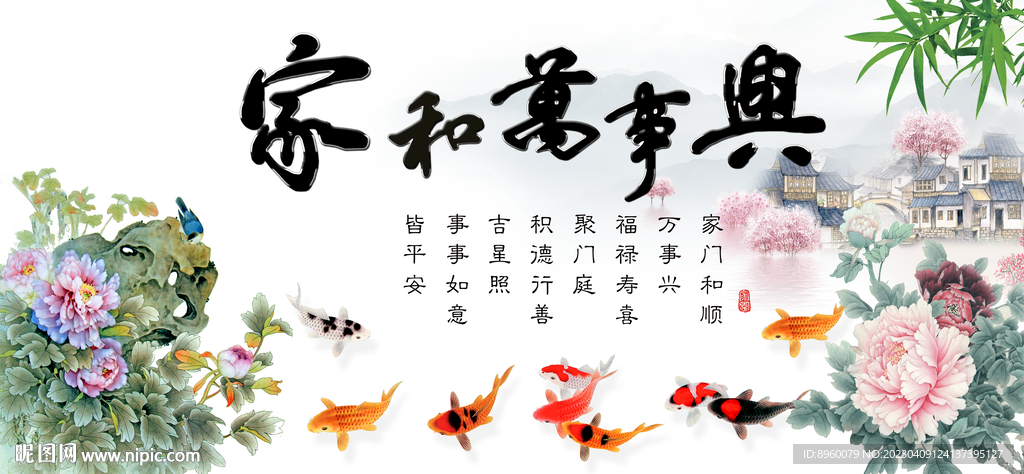 家和萬事興
家门和顺
万事兴
福禄寿喜
聚门庭
积德行善
吉星照
事事如意
皆平安
昵图网 www.nipic.com
ID:8960079 NO:20230409124137395127